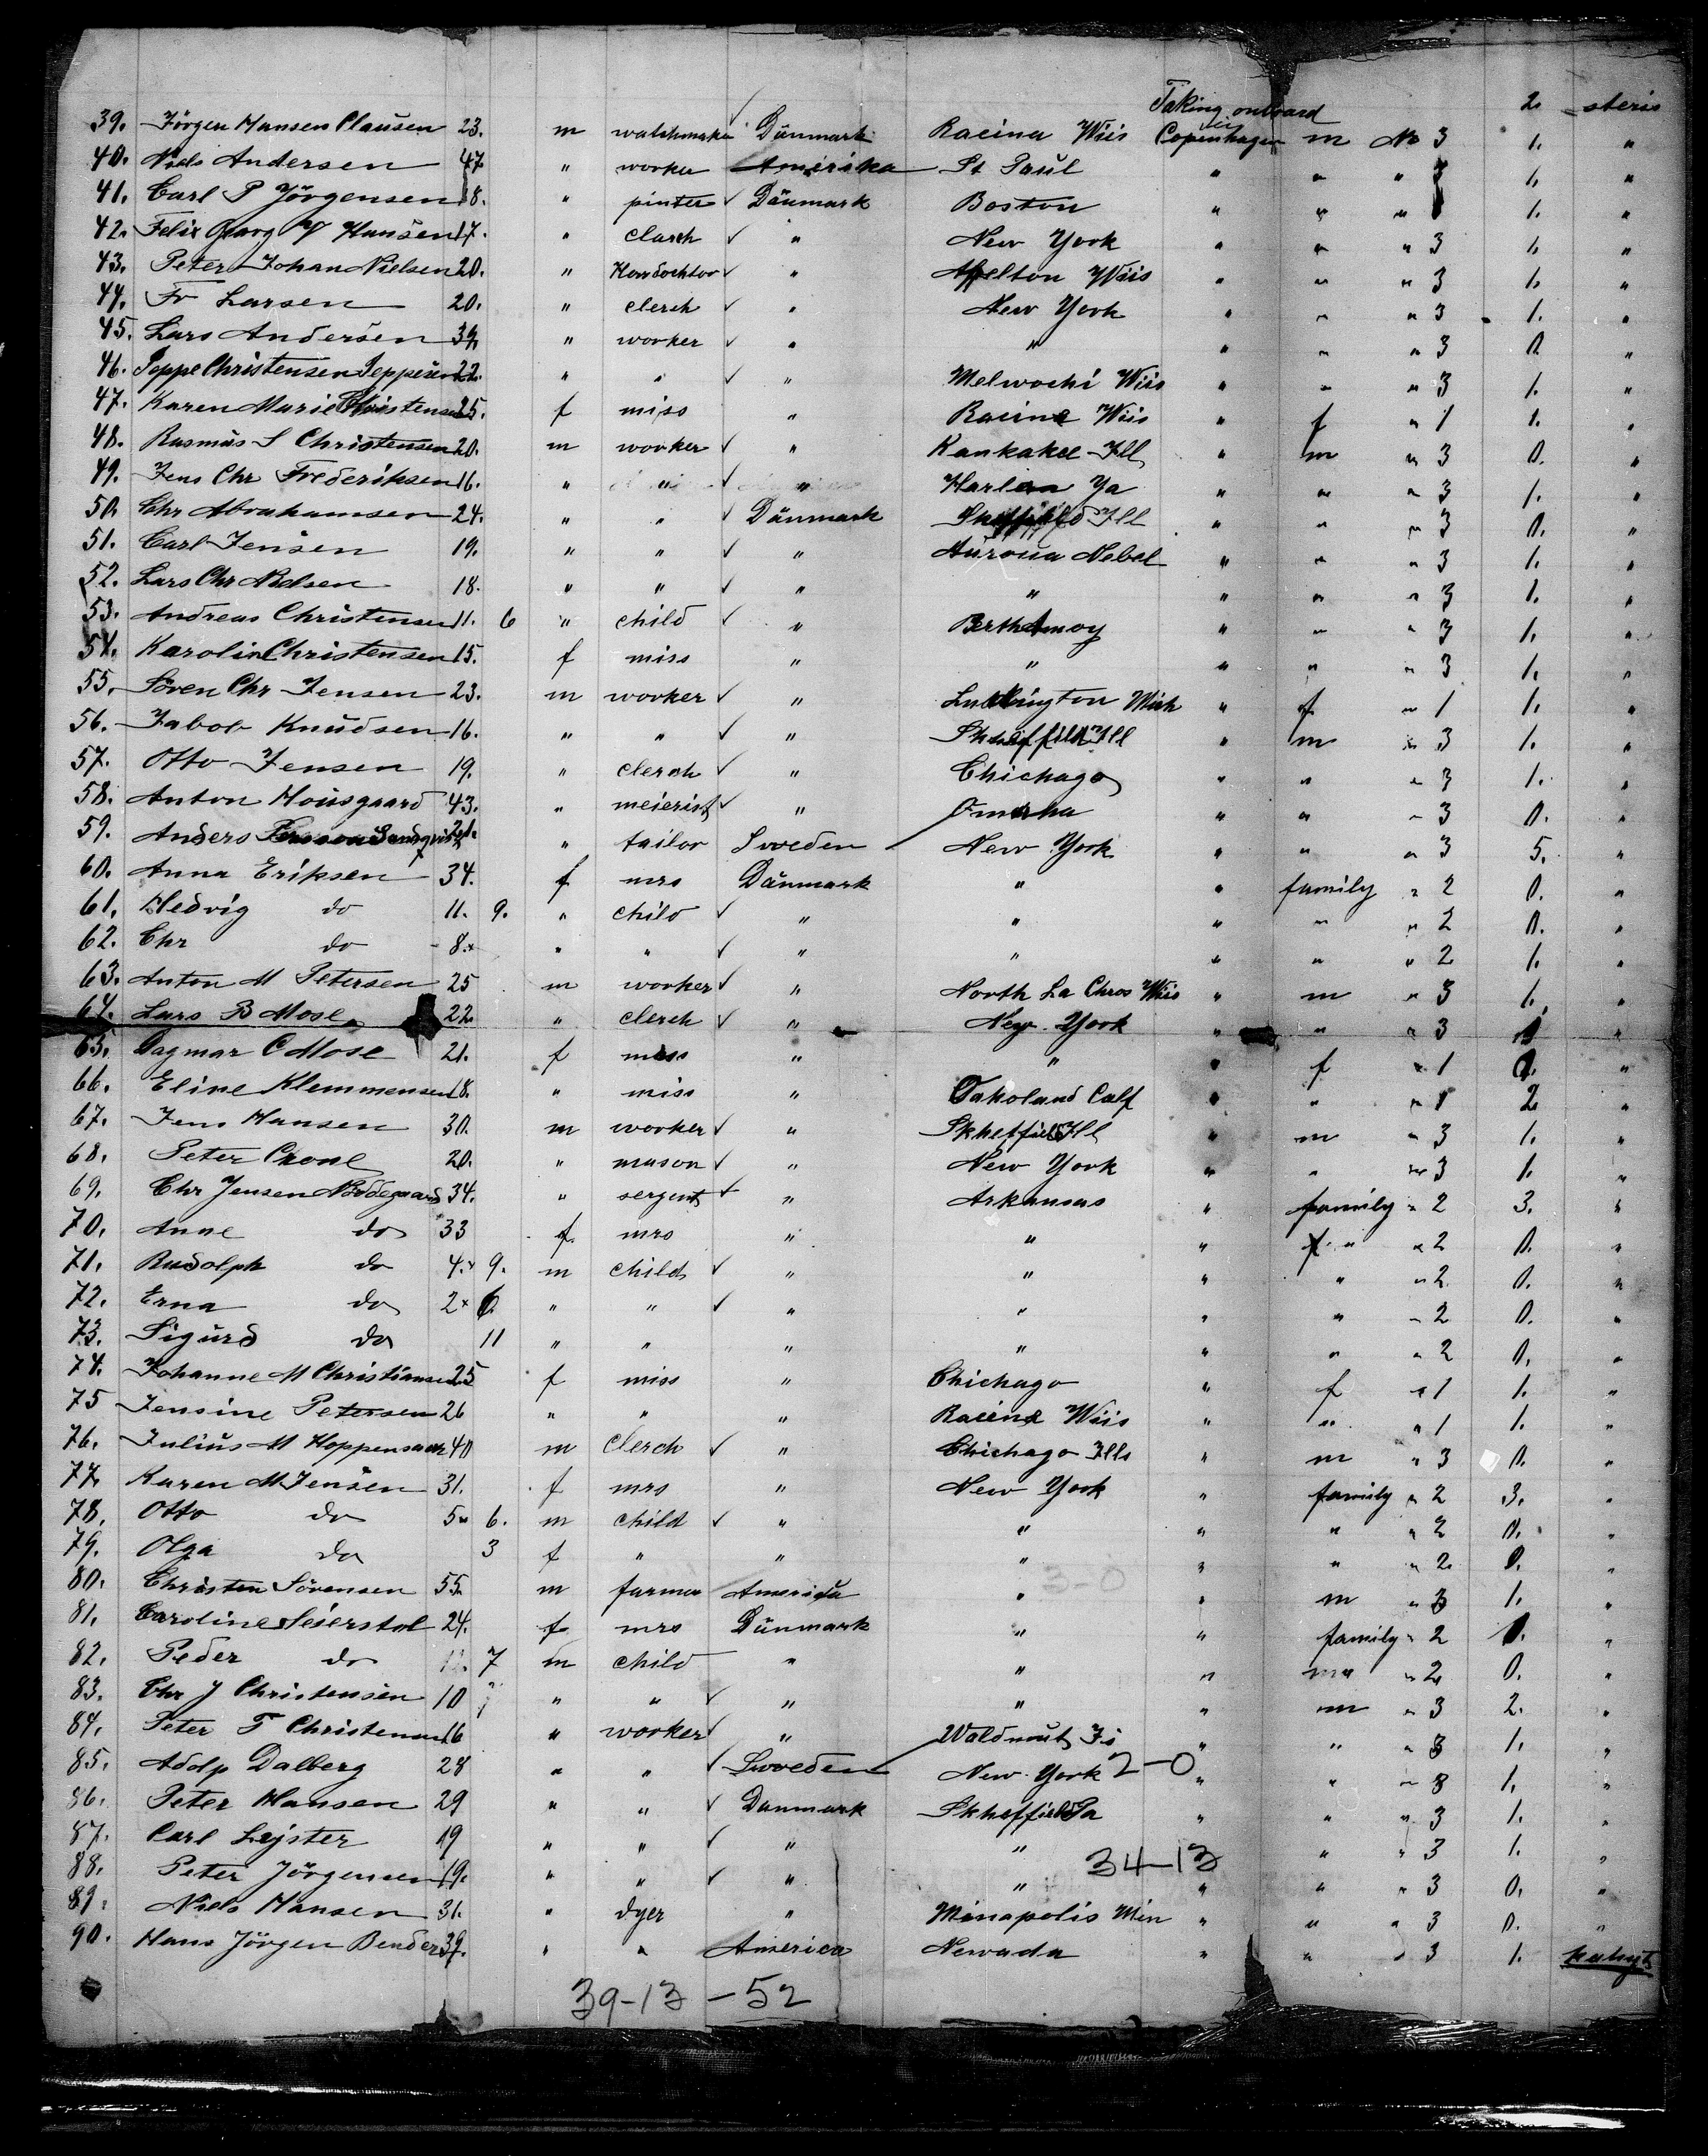 Taking onboard 2. steris
39. Jörgen Hansen Clausen 23. m watchmaker Dänmark Racina Wiis Copenhagen m No 3 1. "
40. Niels Andersen 47 " worker Amerika St Paul " " " 1. "
41. Carl P Jörgensen 18. " pinter ✓ Dänmark Boston " " " 1. "
42. Felix Georg V Hansen 17. " clarch ✓ " New York " " " 3 1. "
43. Peter Johan Nielsen 20. " Kondochtor ✓ " Apelton Wiis " " " 3 1. "
44. Fr Larsen 20. " clerch ✓ " New York " " " 3 1. "
45. Lars Andersen 39. " worker ✓ " " " " " 3 0. "
46. Jeppe Christensen Jeppesen 22. " " ✓ " Melwochi Wiis " " " 3 1. "
47. Karen Marie Christensen 25. f miss " Racine Wiis " f " 1 1. "
48. Rasmus S Christensen 20. m worker ✓ " Kankakee Ill " m " 3 0. "
49. Jens Chr Frederiksen 16. " " ✓ " Harlem Ya " " " 3 1. "
50. Chr Abrahamsen 24. " " ✓ Dänmark Ill " " " 3 0. "
51. Carl Jensen 19. " " ✓ " Auroua Nebel " " " 3 1. "
52. Lars Chr Nielsen 18. " " ✓ " " " " " 3 1. "
53. Andreas Christensen 11. 6 " child ✓ " Berth Amoy " " " 3 1. "
54. Karolin Christensen 15. f miss " " " " " 3 1. "
55. Sören Chr Jensen 23. m worker ✓ " Luddington Mich " f " 1 1. "
56. Jabob Knudsen 16. " " ✓ " Ill " m " 3 1. "
57. Otto Jensen 19. " clerch ✓ " Chichago " " " 3 1. "
58. Anton Housgaard 43. " meierist ✓ " Omarha " " " 3 0. "
59. Anders 21. " tailor Sweden New York " " " 3 5. "
60. Anna Eriksen 34. f mrs Dänmark " " family " 2 0. "
61. Hedvig do 11. 9. " child ✓ " " " " " 2 0. "
62. Chr do 8. " " ✓ " " " " " 2 1. "
63. Anton M Petersen 25 m worker ✓ " North La Chros Wiis " m " 3 1. "
64. Lars B Mose 22 " clerch ✓ " New York " " " 3 "
65. Dagmar C Mose 21. f miss " " " f " 1 0. "
66. Eline Klemmensen 18. " miss " Oakoland Calf " " " 1 2 "
67. Jens Hansen 30. m worker ✓ " Skheffield Ill " m " 3 1. "
68. Peter Crone 20. " mason ✓ " New York " " " 3 1. "
69. Chr Jensen Nöddegaard 34. " sergent ✓ " Arkansas " family " 2 3. "
70. Anne do 33 f mrs " " " f " " 2 0. "
71. Rudolph do 4. 9. m child ✓ " " " " " 2 0. "
72. Erna do 2 6. " " ✓ " " " " " 2 0. "
73. Sigurd do 11 " " " " " " " 2 0. "
74. Johanne M Christiansen 25 f miss " Chichago " f " 1 1. "
75 Jensine Petersen 26 " " " Racine Wiis " " " 1 1. "
76. Julius M Hoppensach 40 m clerch ✓ " Chichago Ills " m " 3 0. "
77. Karen M Jensen 31. f mrs " New York " family " 2 3. "
78. Otto do 5 6. m child ✓ " " " " " 2 0. "
79. Olga do 3 f " " " " " " 2 0. "
3-0
80. Christen Sörensen 55 m farmer America " " m " 3 1. "
81. Caroline Seierstol 24. f mrs Dänmark " " family " 2 "
82. Peder do 7 m child " " " " 2 0. "
83. Chr J Christensen 10 " " ✓ " " " m " 3 2. "
84. Peter T Christensen 16 " worker ✓ " Waldnut Ji " " " 3 1. "
85. Adolp Dalberg 28 " " ✓ Sweden New York 2-0 " " " 3 1. "
86. Peter Hansen 29 " " ✓ Danmark Skheffield Pa " " " 3 1. "
87. Carl Lejster 19 " " ✓ " " " " 3 1. "
34-13
88. Peter Jörgensen 19. " " ✓ " " " " " 3 0. "
89. Niels Hansen 31. " dyer " Minapolis Min " " " 3 0. "
90. Hans Jörgen Bender 39. " " America Newada " " " 3 1.
39-13 -52